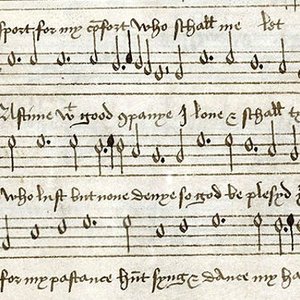 sport for my cōfort who shall me let
Pastime wt good cōpanye I loue & shall ty
who lust but none denye so god be plesyd
for my pastance hūt syng & daūce my ha